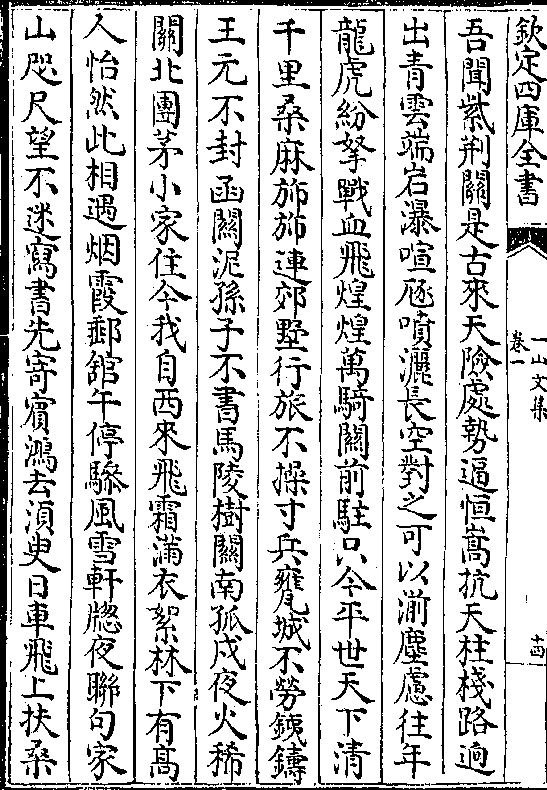 欽定四庫全書
一山文集
卷一
十四
吾聞紫荆關是古來天險處勢逼恒嵩抗天柱棧路迥
出青雲端岩瀑喧豗噴灑長空對之可以湔塵慮往年
龍虎紛拏戰血飛煌煌萬騎關前駐只今平世天下清
千里桑麻斾斾連郊墅行旅不操寸兵甕城不勞鐵鑄
王元不封函關泥孫子不書馬陵樹關南孤戍夜火稀
關北團茅小家住今我自西來飛霜滿衣絮林下有髙
人怡然此相遇烟霞郵舘午停驂風雪軒牕夜聯句家
山咫尺望不迷寫書先寄賔鴻去湏臾日車飛上扶桑